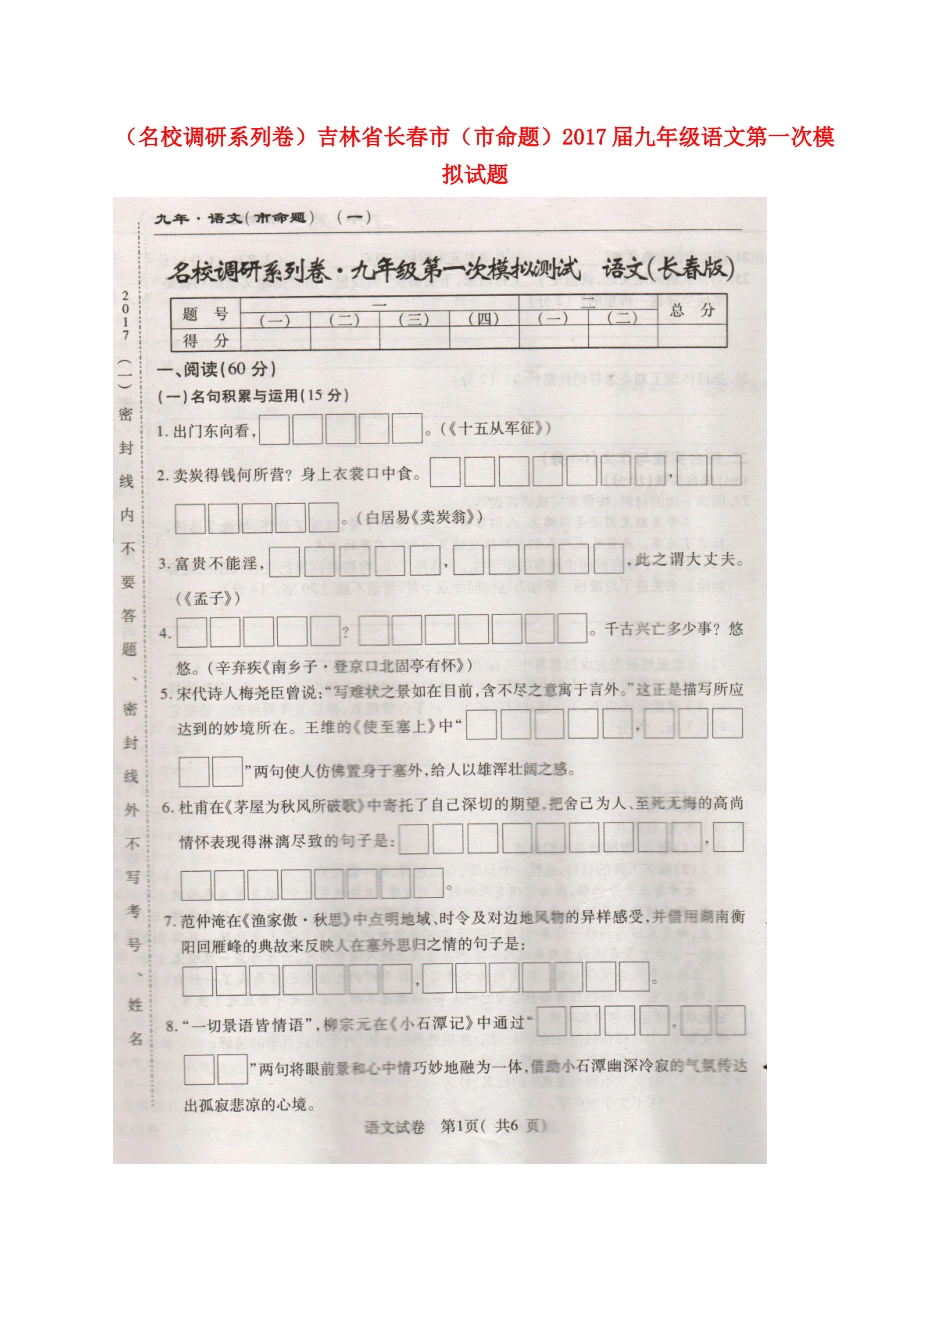 （名校调研系列卷）吉林省长春市（市命题）2017 届九年级语文第一次模
拟试题
九年·语文(市命题) (一)
名校调研系列卷·九年级第一次模拟测试 语文(长春版)
题 号 一 二 总 分
(一) (二) (三) (四) (一) (二)
得 分
一、阅读(60 分)
(一)名句积累与运用(15 分)
1.出门东向看,□□□□□。(《十五从军征》)
2.卖炭得钱何所营？身上衣裳口中食。□□□□□□□,□□
□□□□□。(白居易《卖炭翁》)
3.富贵不能淫,□□□□□,□□□□□,此之谓大丈夫。
(《孟子》)
4.□□□□□?□□□□□□□。千古兴亡多少事？悠
悠。(辛弃疾《南乡子·登京口北固亭有怀》)
5.宋代诗人梅尧臣曾说:“写难状之景如在目前,含不尽之意寓于言外。”这正是描写所应
达到的妙境所在。王维的《使至塞上》中“□□□□□,□□□
□□”两句使人仿佛置身于塞外,给人以雄浑壮阔之感。
6.杜甫在《茅屋为秋风所破歌》中寄托了自己深切的期望,把舍己为人、至死无悔的高尚
情怀表现得淋漓尽致的句子是:□□□□□□□□□,□
□□□□□□□□。
7.范仲淹在《渔家傲·秋思》中点明地域、时令及对边地风物的异样感受,并借用湖南衡
阳回雁峰的典故来反映人在塞外思归之情的句子是:
□□□□□□□,□□□□□□□。
8.“一切景语皆情语”,柳宗元在《小石潭记》中通过“□□□□,□□
□□”两句将眼前景和心中情巧妙地融为一体,借助小石潭幽深冷寂的气氛传达
出孤寂悲凉的心境。
语文试卷 第1页( 共6 页)
2017(一)密封线内不要答题、密封线外不写考号、姓名